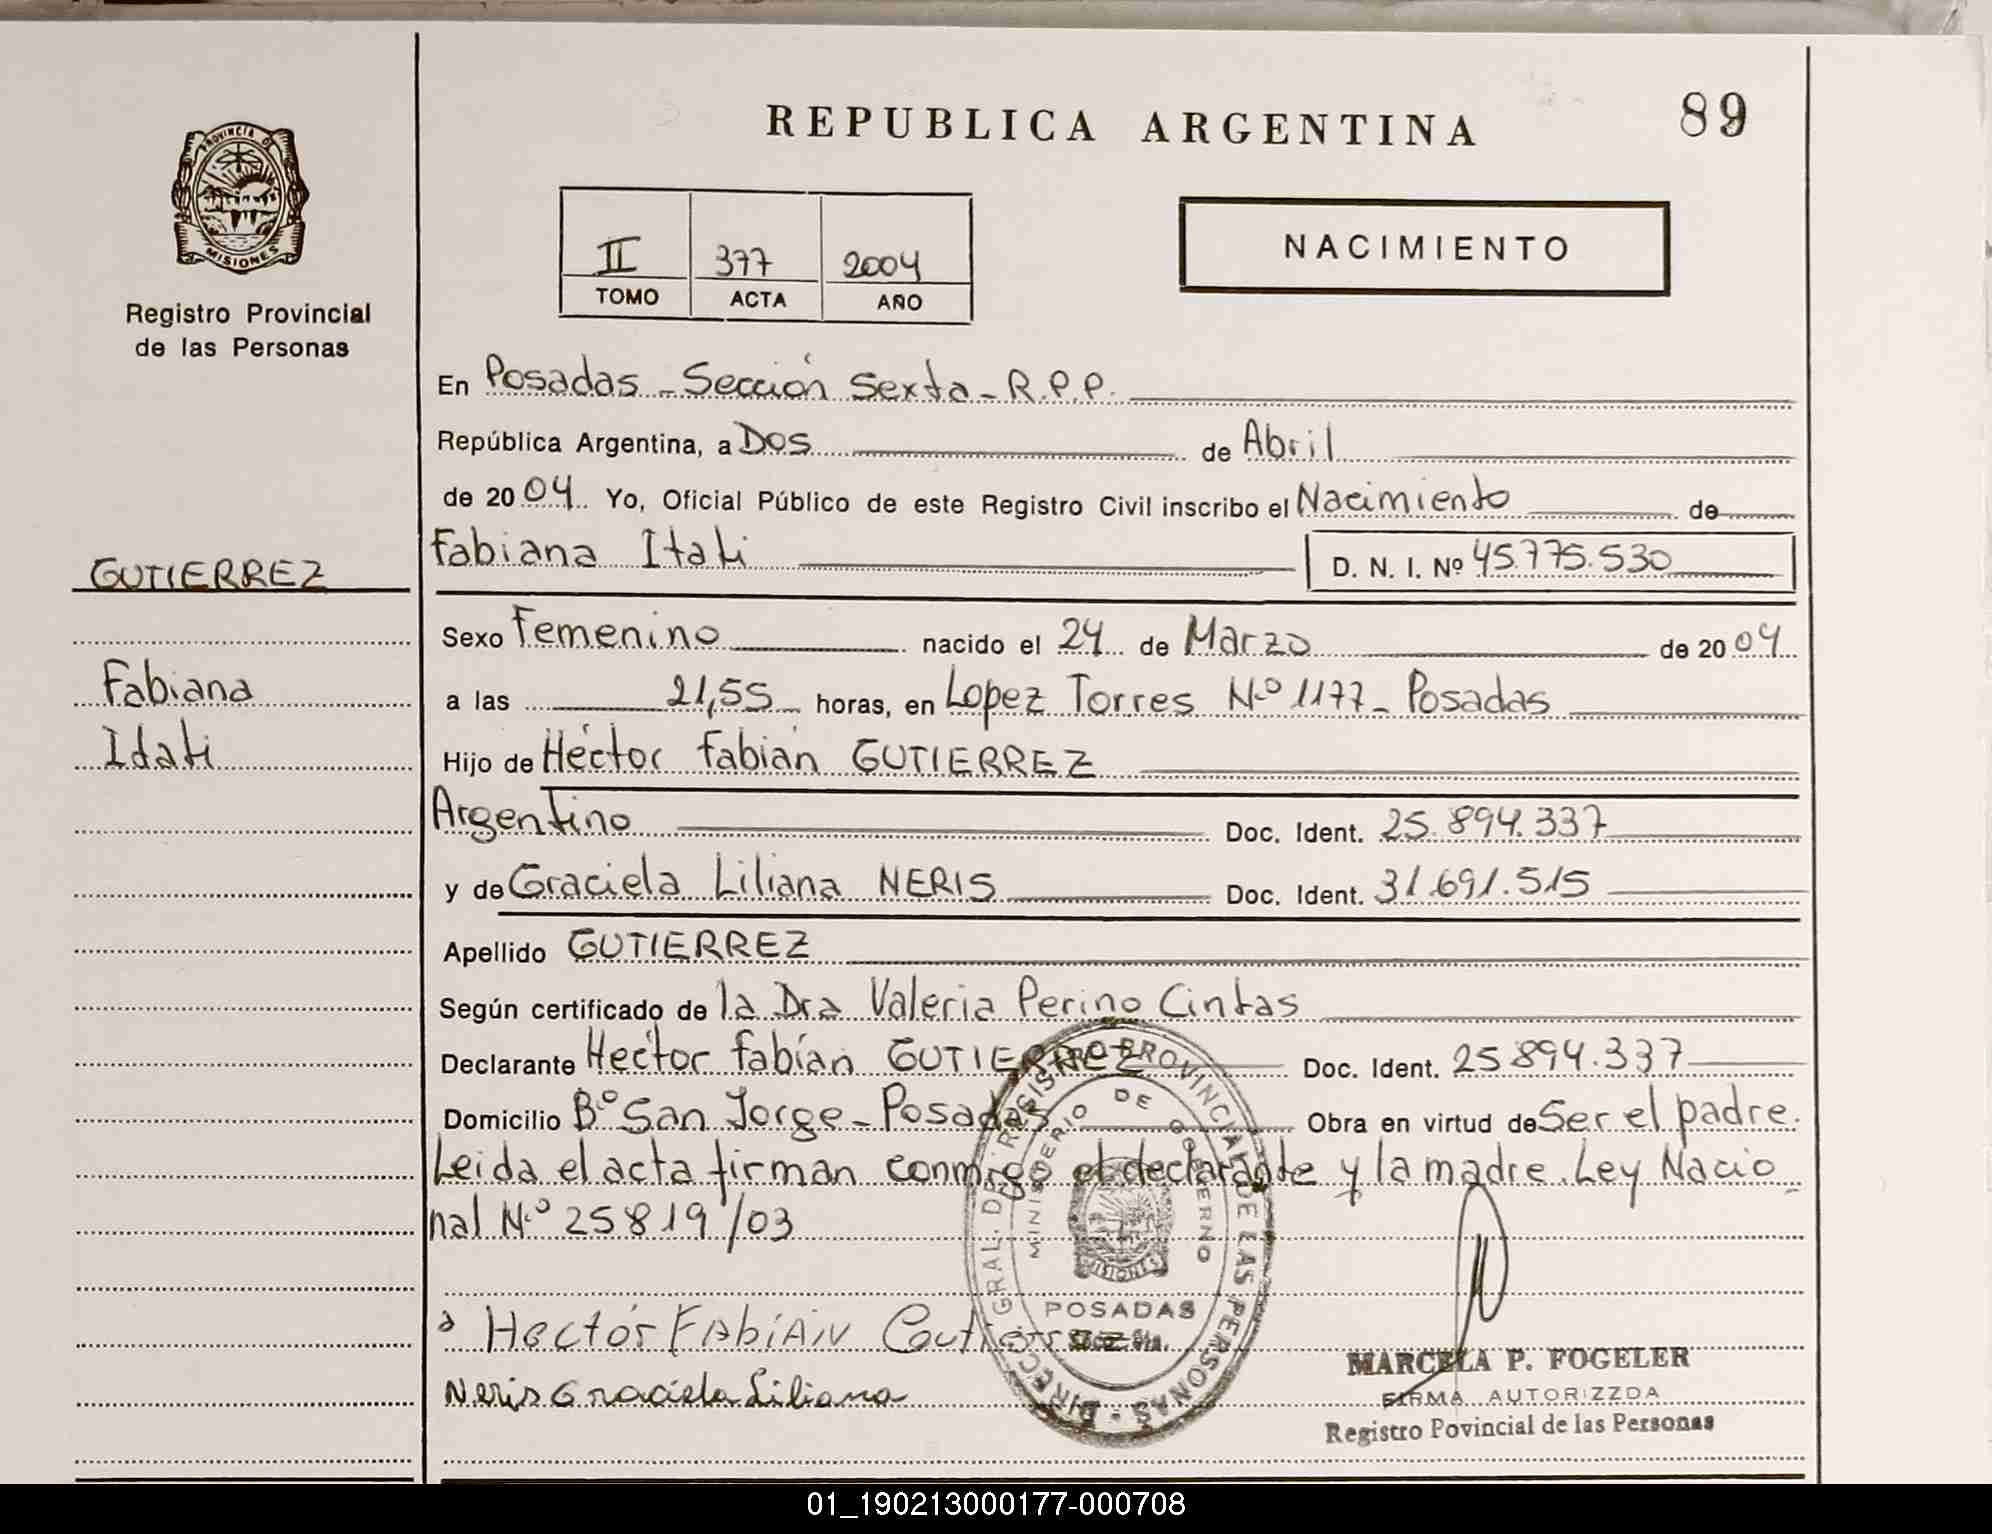 REPUBLICA ARGENTINA
89
PROVINCIA DE
MISIONES
Registro Provincial
de las Personas
II 377 2004
TOMO ACTA AÑO
NACIMIENTO
En Posadas - Sección Sexta - R.P.P.
República Argentina, a Dos de Abril
de 2004 Yo, Oficial Público de este Registro Civil inscribo el Nacimiento de
Fabiana Itati D. N. I. Nº 45.775.530
GUTIERREZ
Fabiana
Idati
Sexo Femenino nacido el 24 de Marzo de 2004
a las 21,55 horas, en Lopez Torres N.º 1177 - Posadas
Hijo de Héctor Fabián GUTIERREZ
Argentino Doc. Ident. 25.894.337
y de Graciela Liliana NERIS Doc. Ident. 31.691.515
Apellido GUTIERREZ
Según certificado de la Dra Valeria Perino Cintas
Declarante Héctor Fabián GUTIERREZ Doc. Ident. 25894.337
Domicilio Bº San Jorge - Posadas Obra en virtud de Ser el padre.
Leida el acta firman conmigo el declarante y la madre. Ley Nacio
nal N.º 25819/03
DIRECC. GRAL. DEL REGISTRO PROVINCIAL DE LAS PERSONAS
MINISTERIO DE GOBIERNO
MISIONES
POSADAS
Secc. 6ta.
Hector FAbiAN Gutierrez
Neris Graciela Liliana
MARCELA P. FOGELER
FIRMA AUTORIZZDA
Registro Povincial de las Personas
01_190213000177-000708